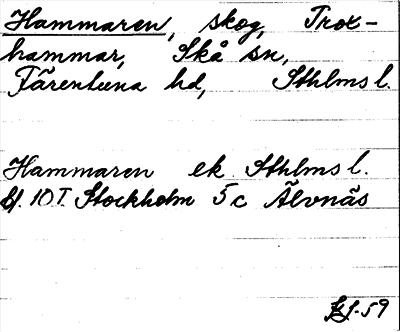 Hammaren, skog, Trox-
hammar, Skå sn,
Färentuna hd, Sthlms l.
Hammaren ek Sthlms l.
bl. 10 T. Stockholm 5c Älvnäs
-59